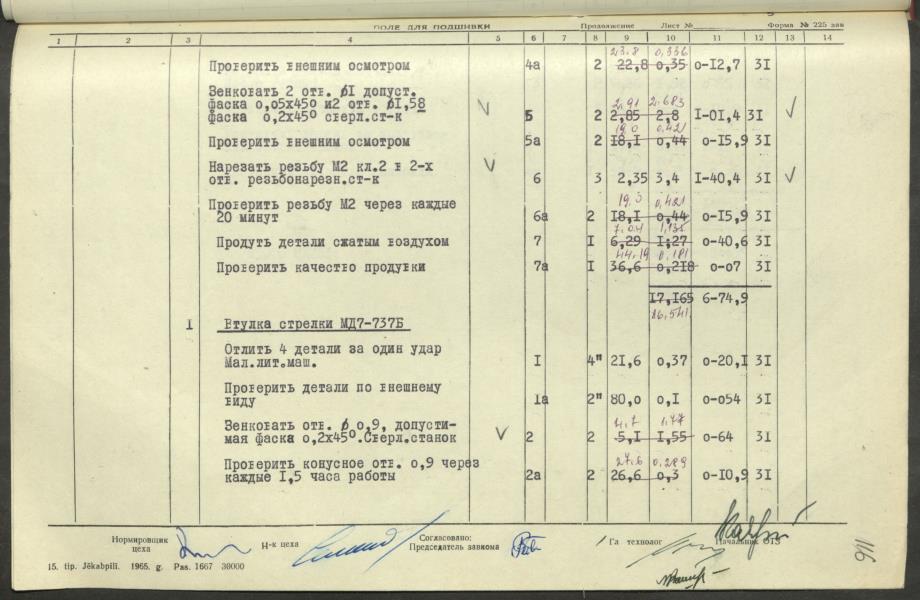 ПОЛЕ ДЛЯ ПОДШИВКИ Продолжение Лист № Форма № 225 зав
1 2 3 4 5 6 7 8 9 10 11 12 13 14
23.8 0,336
Проверить внешним осмотром 4а 2 22,8 0,35 0-12,7 3I
Зенковать 2 отв. ∅I допуст.
фаска 0,05х45° и2 отв. ∅I,58
2,91 2,683
фаска 0,2х45° сверл.ст-к 5 2 2,85 2,8 I-0I,4 3I
19,0 0,421
Проверить внешним осмотром 5а 2 I8,I 0,44 0-I5,9 3I
Нарезать резьбу М2 кл.2 в 2-х
отв. резьбонарезн.ст-к 6 3 2,35 3,4 I-40,4 3I
Проверить резьбу М2 через каждые
19,0 0,421
20 минут 6а 2 I8,I 0,44 0-I5,9 3I
7.04 1,135
Продуть детали сжатым воздухом 7 I 6,29 I;27 0-40,6 3I
44,19 0,181
Проверить качество продувки 7а I 36,6 0,2I8 0-07 3I
I7,I65 6-74,9
16,541
I Втулка стрелки МД7-737Б
Отлить 4 детали за один удар
Мал.лит.маш. I 4" 2I,6 0,37 0-20,I 3I
Проверить детали по внешнему
виду Iа 2" 80,0 0,I 0-054 3I
Зенковать отв. ∅ 0,9, допусти-
4,7 1,77
мая фаска 0,2х45°.Сверл.станок 2 2 5,I I,55 0-64 3I
Проверить конусное отв. 0,9 через
27.6 0,289
каждые I,5 часа работы 2а 2 26,6 0,3 0-I0,9 3I
Нормировщик
цеха
Н-к цеха
Согласовано:
Председатель завкома
Гл технолог
Начальник ОТЗ
15. tip. Jēkabpilī. 1965. g. Pas. 1667 30000
116